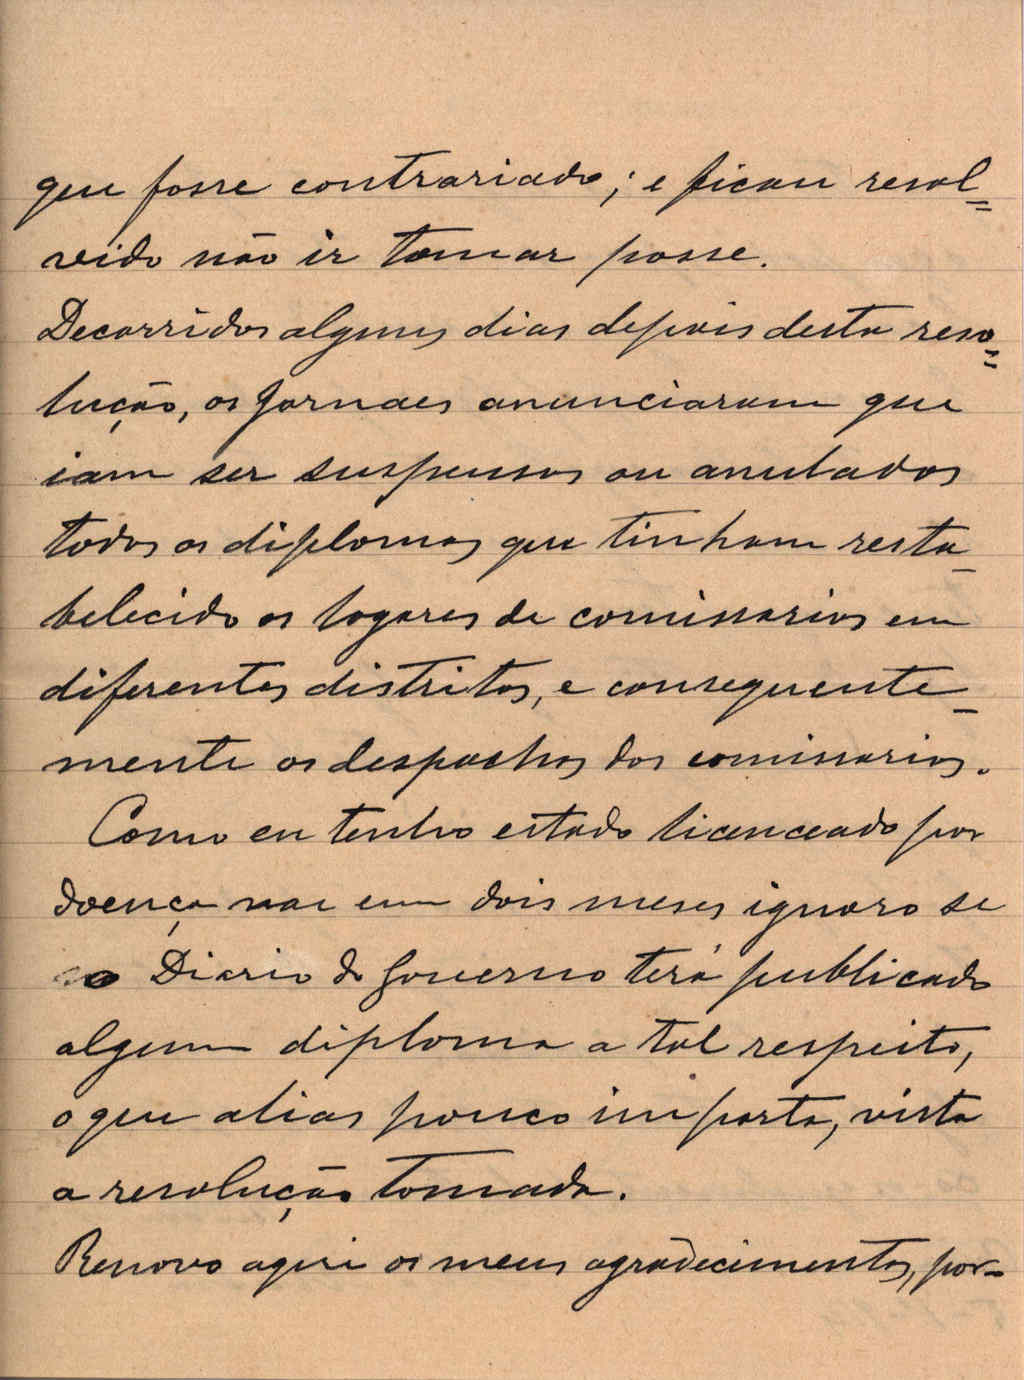 que fosse contrariado; e ficou resol=
vido não ir tomar posse.
Decorridos alguns dias depois desta reso=
lução, os jornaes anunciaram que
iam ser suspensos ou anulados
todos os diplomas que tinham resta-
belecido os logares de comissarios em
diferentes distritos, e consequente-
mente os despachos dos comissarios.
Como eu tenho estado licenceado por
doença vae em dois meses ignoro se
o Diario do Governo terá publicado
algum diploma a tal respeito,
o que alias pouco importa, vista
a resolução tomada.
Renovo aqui os meus agradecimentos, por-